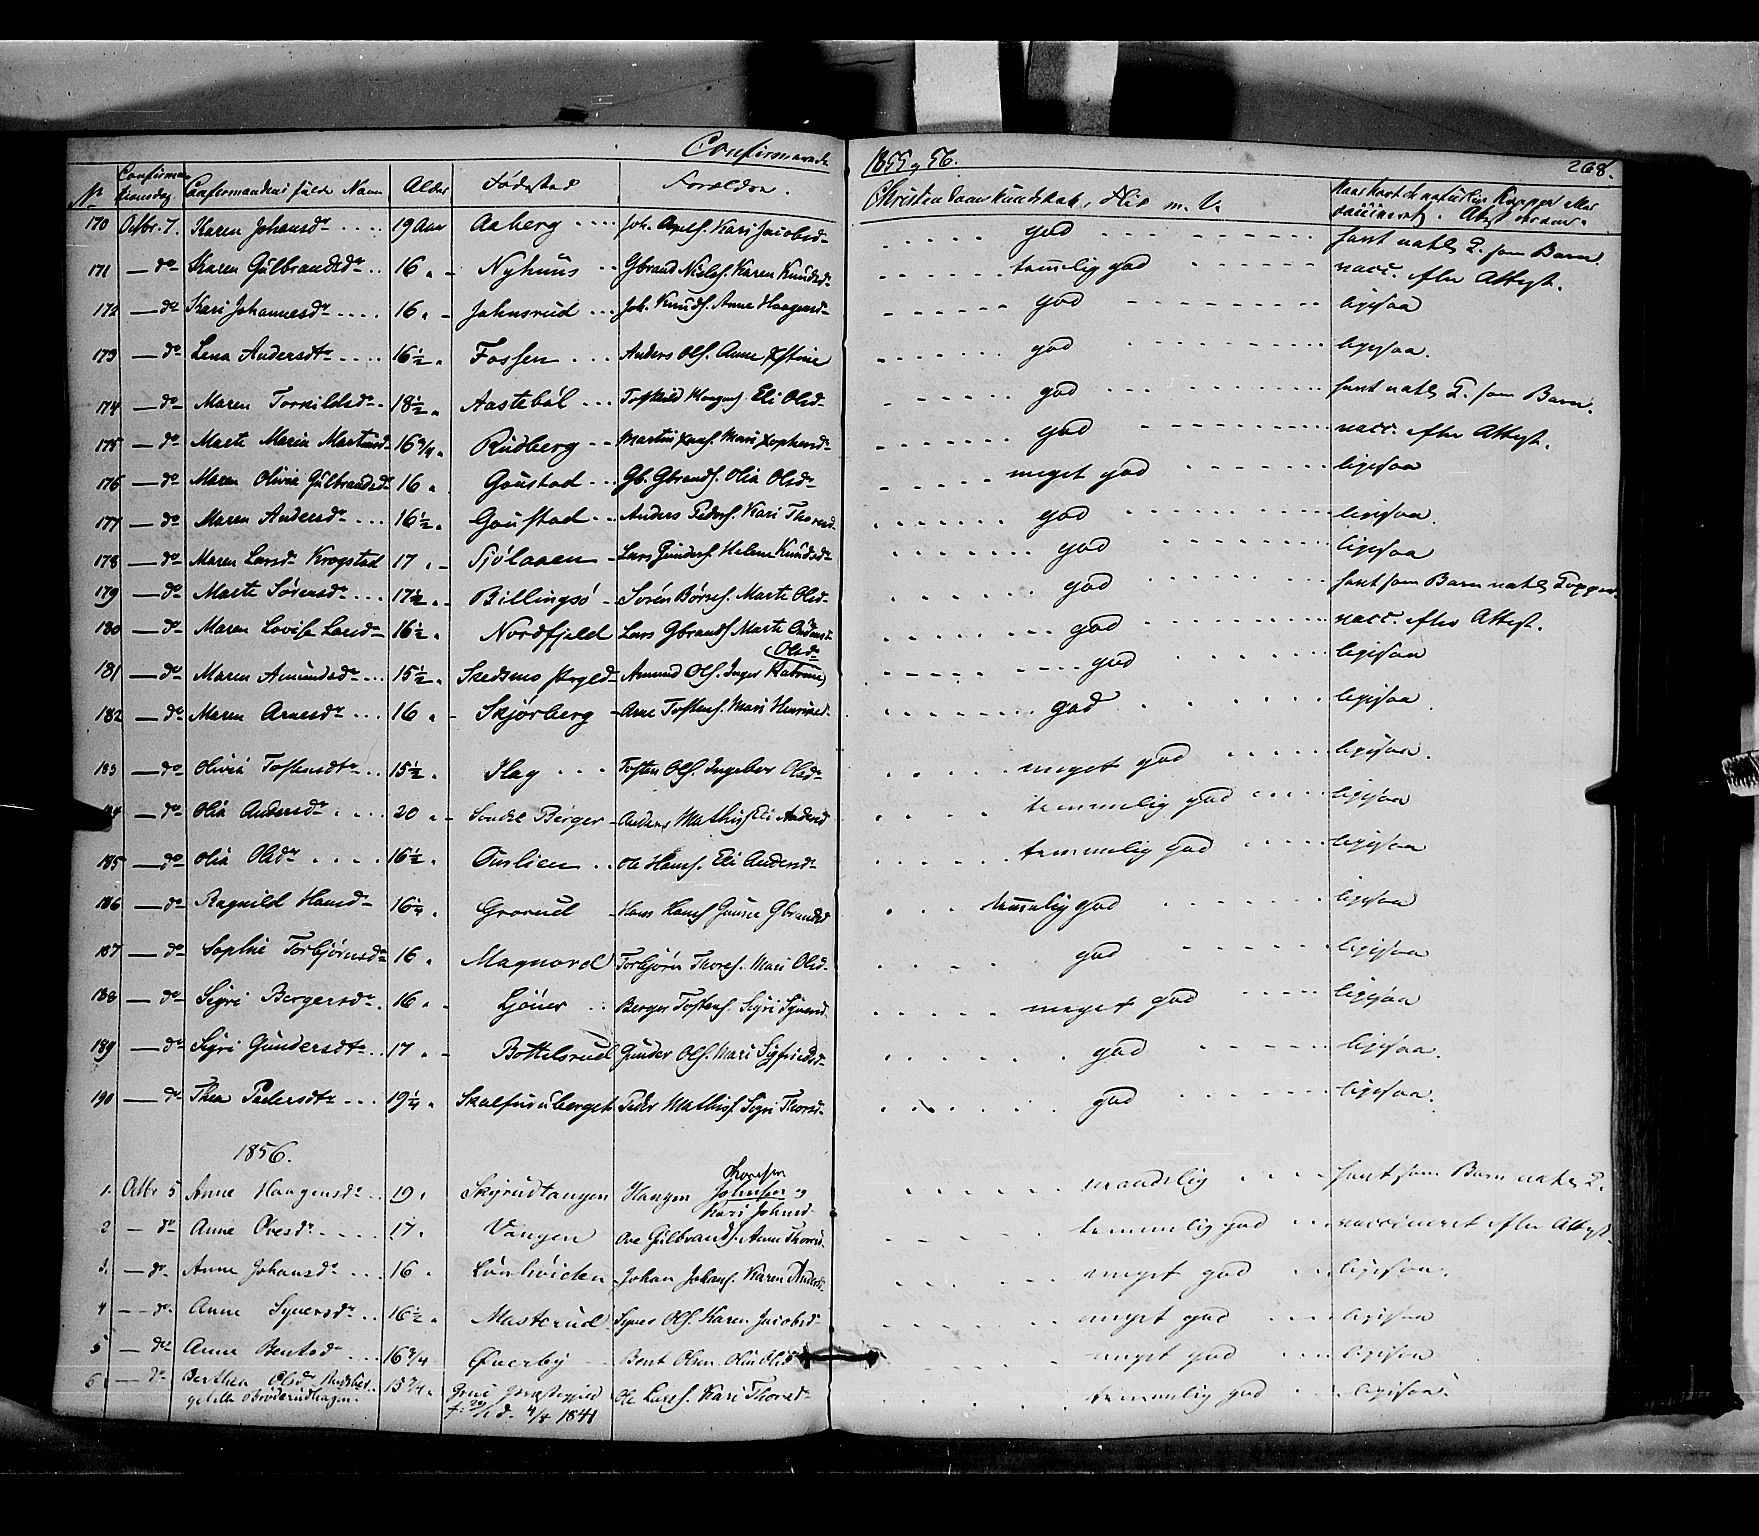 Confirmerede 1855 og 56. 268.
No Confirmations dag Confirmandens fulde Navn Alder Fødested Forældre. Christendomskundskab, Flid m. V.
170 Octbr. 7. Karen Johansdr 19 Aar Aaberg Joh. Kari Jacobsd. god havt natl. K. som Barn.
171 — do Karen Gulbrandsdr 16 " Nyhuus Gbrand Nielss. Karen Knudsd. temmelig god vacc. efter Attest.
172 — do Kari Johannesdr 16 " Johnsrud Joh. Knuds. Anne Haagensd. god ligesaa
173 — do Lena Andersdtr 16½ " Fossen Anders Ols. Anne god ligesaa.
174 — do Maren Torkildsdr 18½ " Aastebøl Haagens. Eli Olsd. god havt natl. K. som Barn.
175 — do Marte Maria Martinsd. 16¾ " Rudberg Martin Mari god vacc. efter Attest.
176 — do Maren Olivia Gulbrandsdr 16 " Goustad Gb. Gbrands. Olia Olsdr meget god ligesaa
177 — do Maren Andersdr 16½ " Goustad Anders Peders. Kari Thoresd. god ligesaa.
178 — do Maren Larsdr Krogstad 17 " Sjølaaen Lars Gunders. Helene Knudsdr god ligesaa
179 — do Marte Sørensdr 17½ " Billingsø Søren Børres. Marte Olsd. god havt som Barn natl. Kopper.
180 — do Maren Lovise Larsdr 16½ " Nordfjeld Lars Gbrands. Marte god vacc. efter Attest.
181 — do Maren Amundsdr 15½ " Skedsmo Prgld. Amund Ols. Inger Katrine Olsdr god ligesaa
182 — do Maren Arnesdr 16 " Skjørberg Arne Tostens. Mari god ligesaa
183 — do Olivia Tostensdtr 15½ " Flag Tosten Ols. Ingebor Olsdr meget god ligesaa.
184 — do Olia Andersdr 20 " Søndre Berger Anders Mathis. Eli Andersd temmelig god ligesaa
185 — do Olia Olsdr 16½ " Ourlien Ole Hans. Eli Andersd. temmelig god ligesaa
186 — do Ragnild Hansd. 16¼ " Grorud Hans Hans. Gunne Gbrandsd temmelig god ligesaa
187 — do Sophie Torbjørnsdr 16 " Magnord Torbjørn Thores. Mari Olsd. god ligesaa
188 — do Sigri Bergersdr 16 " Ljøner Berger Tostens. Sigri Syversd. meget god ligesaa
189 — do Sigri Gundersdtr 17 " Bottelsrud Gunder Ols. Mari Sigfriedsd. god ligesaa.
190 — do Thea Pedersdtr 19¼ " Skalfuruberget Peder Mathis. Sigri Thorsd. god ligesaa.
1856.
1. Octbr 5 Anne Haagensdr 19 " Skyrudtangen Haagen Johnsen og Thoresen Kari Johnsd. maadelig havt som Barn natl. K.
2 — do Anne Ovesdr 17. Vangen Ove Gulbrands. Anne Thoresd. temmelig god vaccineret efter Attest.
3. — do. Anne Johansdr 16 " Johan Johans. Karen Anders. meget god ligesaa.
4 — do. Anne Syversdr 16½ " Masterud Syver Ols. Karen Jacobsd. meget god ligesaa
5 — do Anne Bentsdr 16¾ " Øverby Bent Olsen Olia Olsd meget god ligesaa
6. — do Berthea Olsdr 15¾ " Grue Præstegjed Ole Larss. Kari Thoresd. temmelig god ligesaa.
f. 29/1 d. 4/4 1841